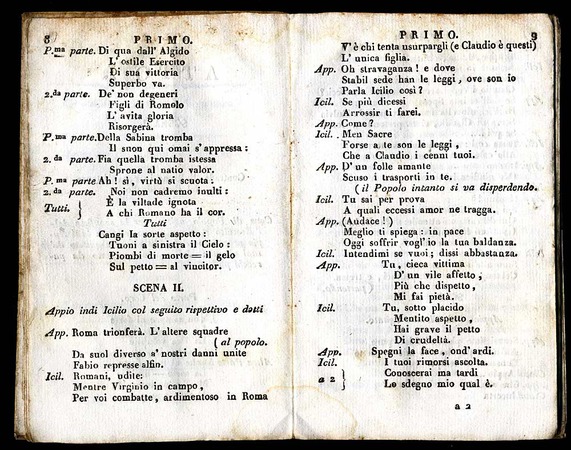 8 PRIMO.
P.ma parte. Di qua dall' Algido
L' ostile Esercito
Di sua vittoria
Superbo va.
2.da parte. De' non degeneri
Figli di Romolo
L' avita gloria
Risorgerà.
P.ma parte. Della Sabina tromba
Il suon qui omai s'appressa:
2.da parte. Fia quella tromba istessa
Sprone al natio valor.
P.ma parte Ah! sì, virtù si scuota:
2.da parte. Noi non cadremo inulti:
Tutti. } È la viltade ignota
A chi Romano ha il cor.
Tutti
Cangi la sorte aspetto:
Tuoni a sinistra il Cielo:
Piombi di morte = il gelo
Sul petto = al vincitor.
SCENA II.
Appio indi Icilio col seguito rispettivo e detti
App. Roma trionferà. L' altere squadre
( al popolo.
Da suol diverso a' nostri danni unite
Fabio represse alfin.
Icil. Romani, udite:
Mentre Virginio in campo,
Per voi combatte, ardimentoso in Roma
PRIMO. 9
V' è chi tenta usurpargli (e Claudio è questi)
L' unica figlia.
App. Oh stravaganza! e dove
Stabil sede han le leggi, ove son io
Parla Icilio così?
Icil. Se più dicessi
Arrossir ti farei.
App. Come?
Icil. Men Sacre
Forse a te son le leggi,
Che a Claudio i cenni tuoi.
App. D' un folle amante
Scuso i trasporti in te.
( il Popolo intanto si va disperdendo.
Icil. Tu sai per prova
A quali eccessi amor ne tragga.
App. (Audace!)
Meglio ti spiega: in pace
Oggi soffrir vogl' io la tua baldanza.
Icil. Intendimi se vuoi; dissi abbastanza.
App. Tu, cieca vittima
D' un vile affetto,
Più che dispetto,
Mi fai pietà.
Icil. Tu, sotto placido
Mentito aspetto,
Hai grave il petto
Di crudeltà.
App. Spegni la face, ond' ardi.
Icil. I tuoi rimorsi ascolta.
a 2 } Conoscerai ma tardi
Lo sdegno mio qual è.
a 2